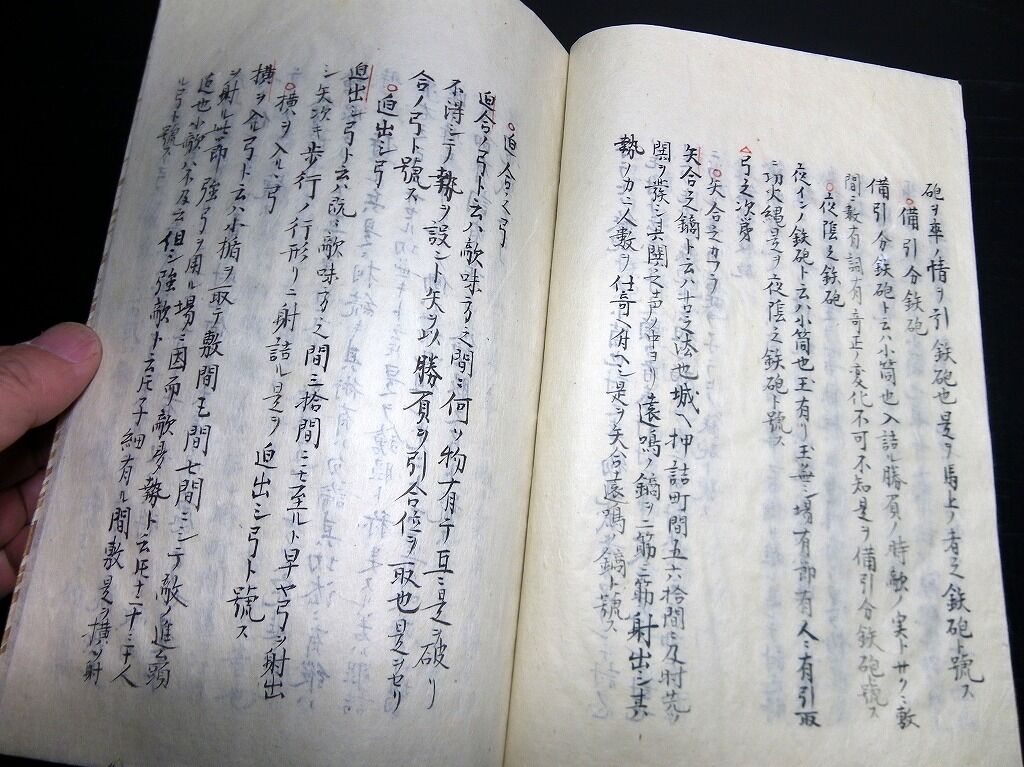 砲ヲ率ノ情ヲ引鉄砲也是ヲ馬上ノ者之鉄砲ト號ス
○備引分鉄砲
備引分鉄砲ト云ハ小筒也入詰ル勝負ノ時敵ノ実トサクミ敷
間ニ敷有詞有奇正ノ変化不可不知是ヲ備引分鉄砲號ス
○夜陰之鉄砲
夜インノ鉄砲ト云ハ小筒也玉有リ玉無シ場有節有人ニ有引取
ニ功火縄是ヲ夜陰之鉄砲ト號ス
△弓之次第
○矢合之カフラ
矢合之鏑ト云ハ古之法也城ヘ押詰町間五六拾間ニ及時先ツ
鬨ヲ發シ其鬨之声ノ中ヨリ遠鳴ノ鏑ヲ二筋三筋射出シ其
勢ヲカニ人数ヲ仕寄ヘ付ヘシ是ヲ矢合遠鳴ノ鏑ト號ス
○迫合之弓
迫合ノ弓ト云ハ敵味方之間ニ何ソ物有テ互ニ是ヲ破リ
不得シテ勢ヲ設ント矢ヲ以勝負ヲ引合位ヲ取也是ヲセリ
合ノ弓ト號ス
○迫出シ弓
迫出シ弓ト云ハ既ニ敵味方之間三拾間ニモ至ルト早ヤ弓ヲ射出
シ矢次キ歩行ノ行形リニ射詰ル是ヲ迫出シ弓ト號ス
○横ヲ入ル弓
横ヲ入ル弓ト云ハ小楯ヲ取テ敷間五間七間ニシテ敵ノ進ム
ヲ射ル此節強弓ヲ用ル場ニ因而敵多勢ト云圧十二十三十人
迄也小敵ハ不及云但シ強敵ト云圧子細有ル間敷是ヲ横ヲ射
ル弓ト號ス